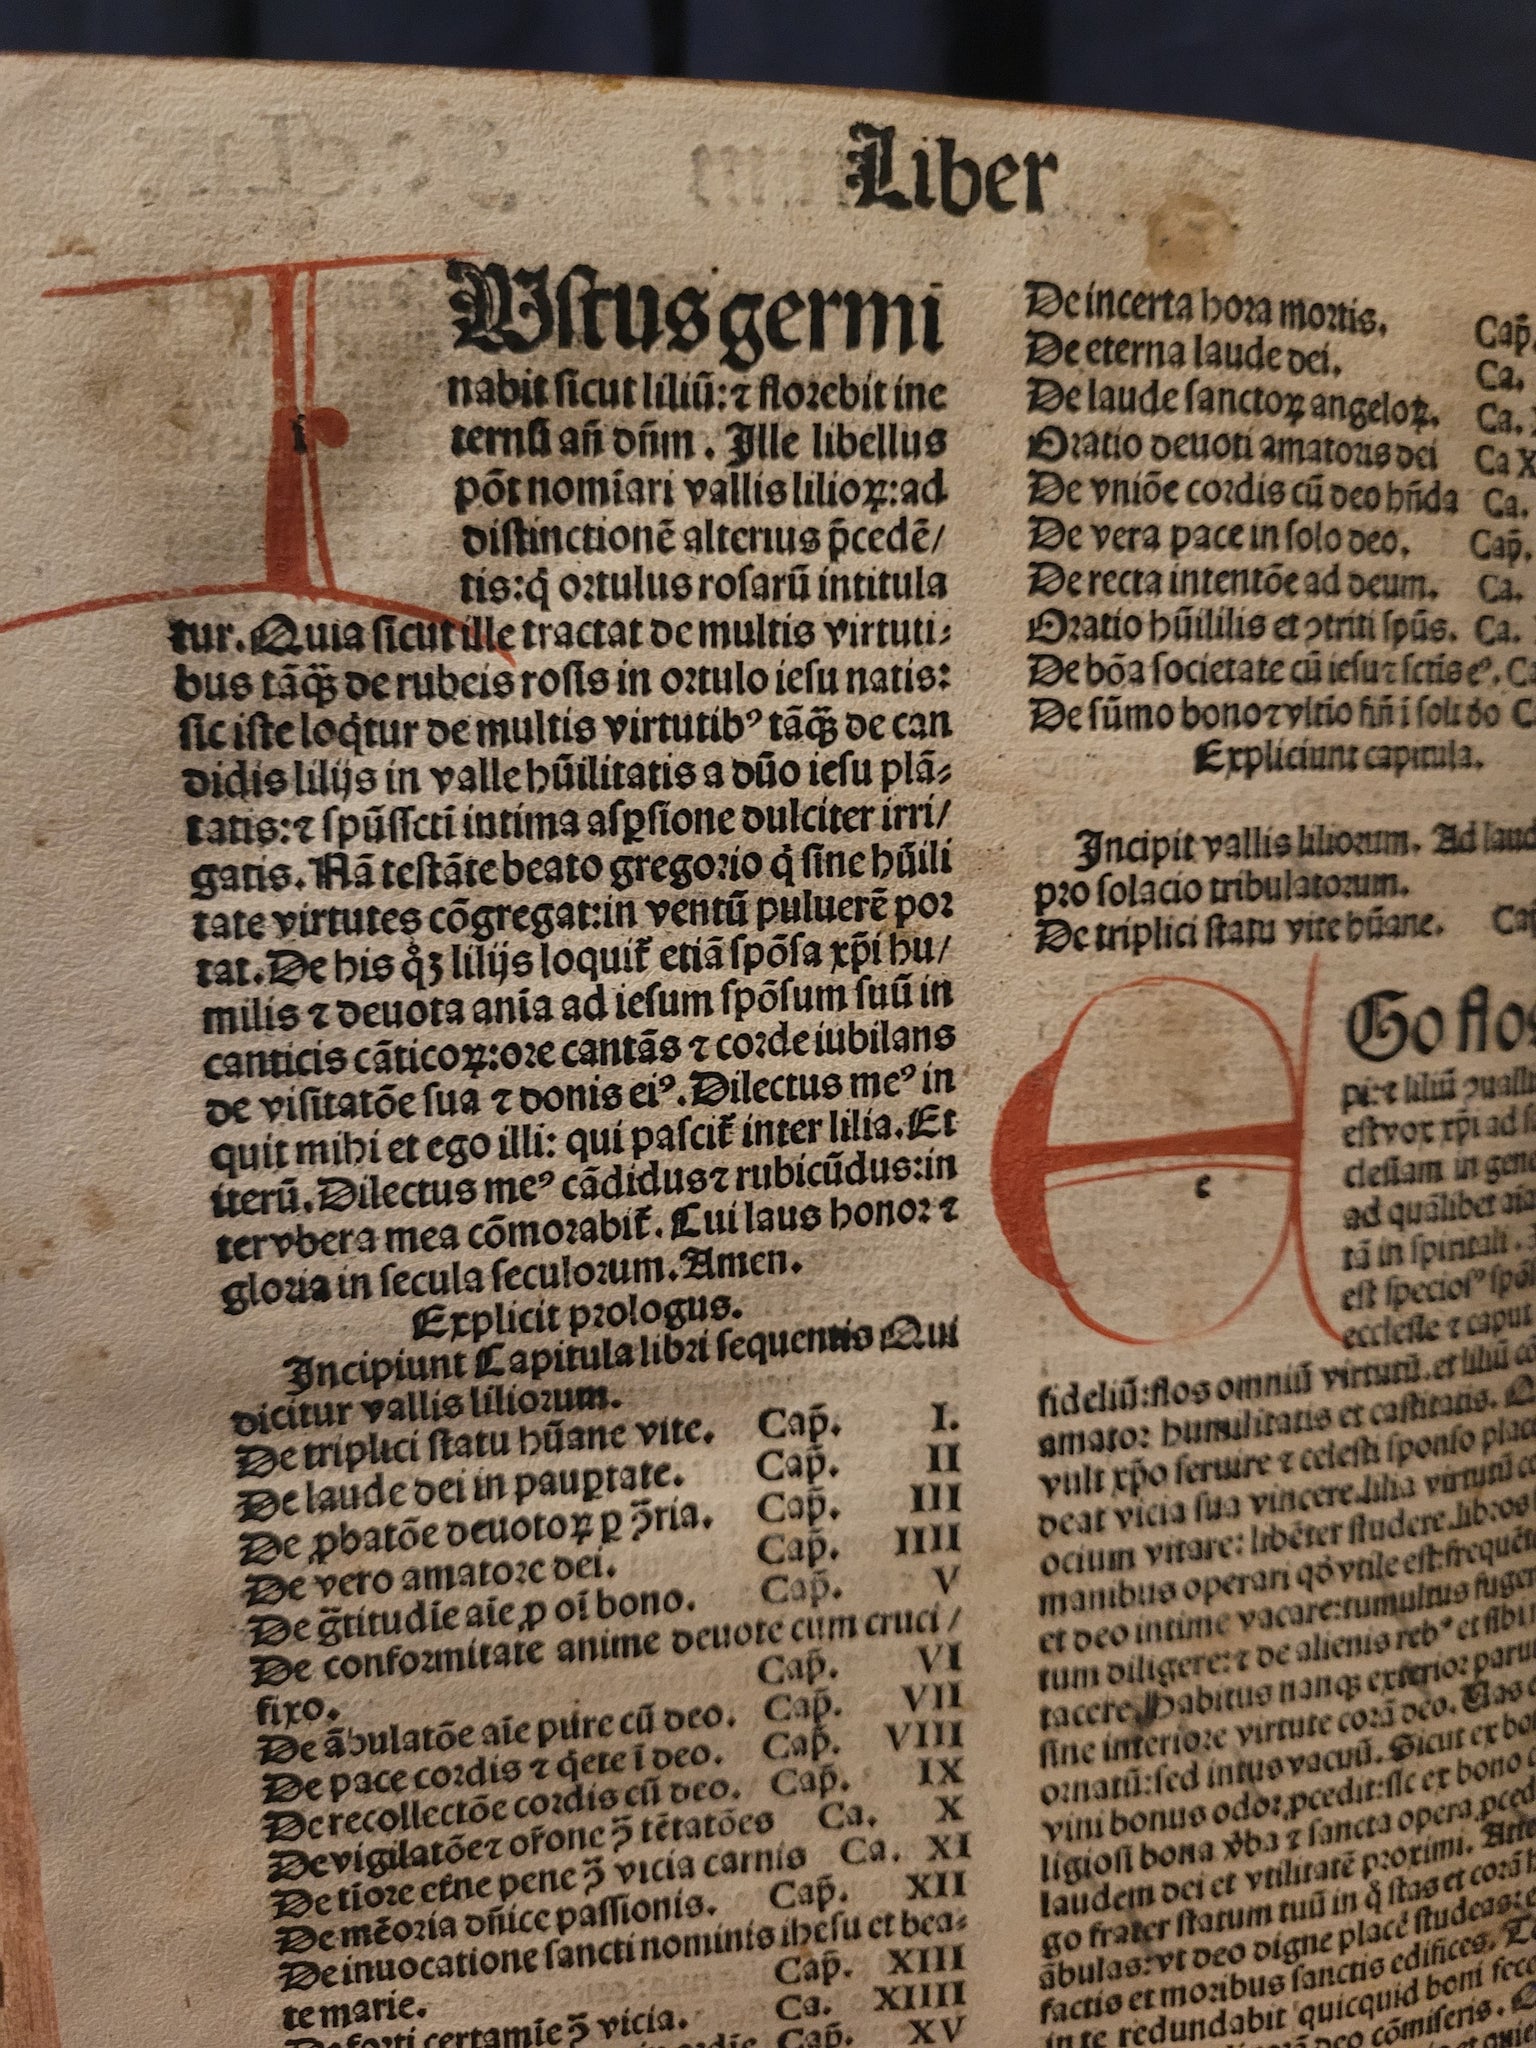 Liber
IUstus germi
nabit sicut liliū: ⁊ florebit in e
ternū añ dñm. Ille libellus
põt nomīari vallis lilioꝝ: ad
distinctionē alterius p̄cedē/
tis: q̇ ortulus rosarū intitula
tur. Quia sicut ille tractat de multis virtuti⸗
bus tāq̄ꝫ de rubeis rosis in ortulo iesu natis:
sic iste loq̇tur de multis virtutibꝰ tāq̄ꝫ de can
didis lilijs in valle hūilitatis a dño iesu plā⸗
tatis: ⁊ spūssctī intima aspꝑsione dulciter irri/
gatis. Nā testāte beato gregorio q̇ sine hūili
tate virtutes cōgregat: in ventū puluerē por
tat. De his q̊ꝫ lilijs loquit̄ etiā spōsa xp̄i hu/
milis ⁊ deuota anīa ad iesum spōsum suū in
canticis cāticoꝝ: ore cantās ⁊ corde iubilans
de visitatōe sua ⁊ donis eiꝰ. Dilectus meꝰ in
quit mihi et ego illi: qui pascit̄ inter lilia. Et
iterū. Dilectus meꝰ cādidus ⁊ rubicūdus: in
ter vbera mea cōmorabit̄. Cui laus honor ⁊
gloria in secula seculorum. Amen.
Explicit prologus.
Incipiunt Capitula libri sequentis Qui
dicitur vallis liliorum.
De triplici statu hūane vite. Cap̄. I.
De laude dei in pauꝑtate. Cap̄. II
De ꝓbatōe deuotoꝝ ꝑ ↄ̄ria. Cap̄. III
De vero amatore dei. Cap̄. IIII
De ḡtitudīe aīe ꝓ oī bono. Cap̄. V
De conformitate anime deuote cum cruci/
fixo. Cap̄. VI
De ābulatōe aīe pure cū deo. Cap̄. VII
De pace cordis ⁊ q̇ete ī deo. Cap̄. VIII
De recollectōe cordis cū deo. Cap̄. IX
De vigilatōe ⁊ or̄one ↄ̄ tētatōes Ca. X
De tīore et̄ne pene ↄ̄ vicia carnis Ca. XI
De mēoria dñice passionis. Cap̄. XII
De inuocatione sancti nominis ihesu et bea⸗
te marie. Cap̄. XIII
De forti certamīe ↄ̄ vicia. Ca. XIIII
Cap̄. XV
De incerta hora mortis. Cap̄.
De eterna laude dei. Ca.
De laude sanctoꝝ angeloꝝ. Ca.
Oratio deuoti amatoris dei Ca X
De vniōe cordis cū deo hñda Ca.
De vera pace in solo deo. Cap̄.
De recta intentōe ad deum. Ca.
Oratio hūililis et ↄtriti spūs. Ca.
De bōa societate cū iesu ⁊ sctīs eꝰ. Ca
De sūmo bono ⁊ vltīo fiñ ī solo dō C
Expliciunt capitula.
Incipit vallis liliorum. Ad laud
pro solacio tribulatorum.
De triplici statu vite hūane. Cap
EGo flos
pi: ⁊ liliū ↄuall
est vox xp̄i ad s
clesiam in gene
ad quālibet aīa
tā in spiritali.
est speciosꝰ spō
ecclesie ⁊ caput
fideliū: flos omniū virtutū. et liliū co
amator humilitatis et castitatis. Q
vult xp̄o seruire ⁊ celesti sponso plac
deat vicia sua vincere. lilia virtutū co
ocium vitare: libēter studere. libros
manibus operari qđ vtile est: frequēt
et deo intime vacare: tumultus fuger
tum diligere: ⁊ de alienis rebꝰ et sibi
tacere. Habitus nanqꝫ exterior parum
sine interiore virtute corā deo. Uas
ornatū: sed intus vacuū. Sicut ex bo
vini bonus odor ꝓcedit: sic ex bono
ligiosi bona v̄ba ⁊ sancta opera ꝓced
laudem dei et vtilitatē proximi. Atte
go frater statum tuū in q̇ stas et corā
ābulas: vt deo digne placē studeas:
factis et moribus sanctis edifices. To
in te redundabit quicquid boni fece
deo cōmiseris.